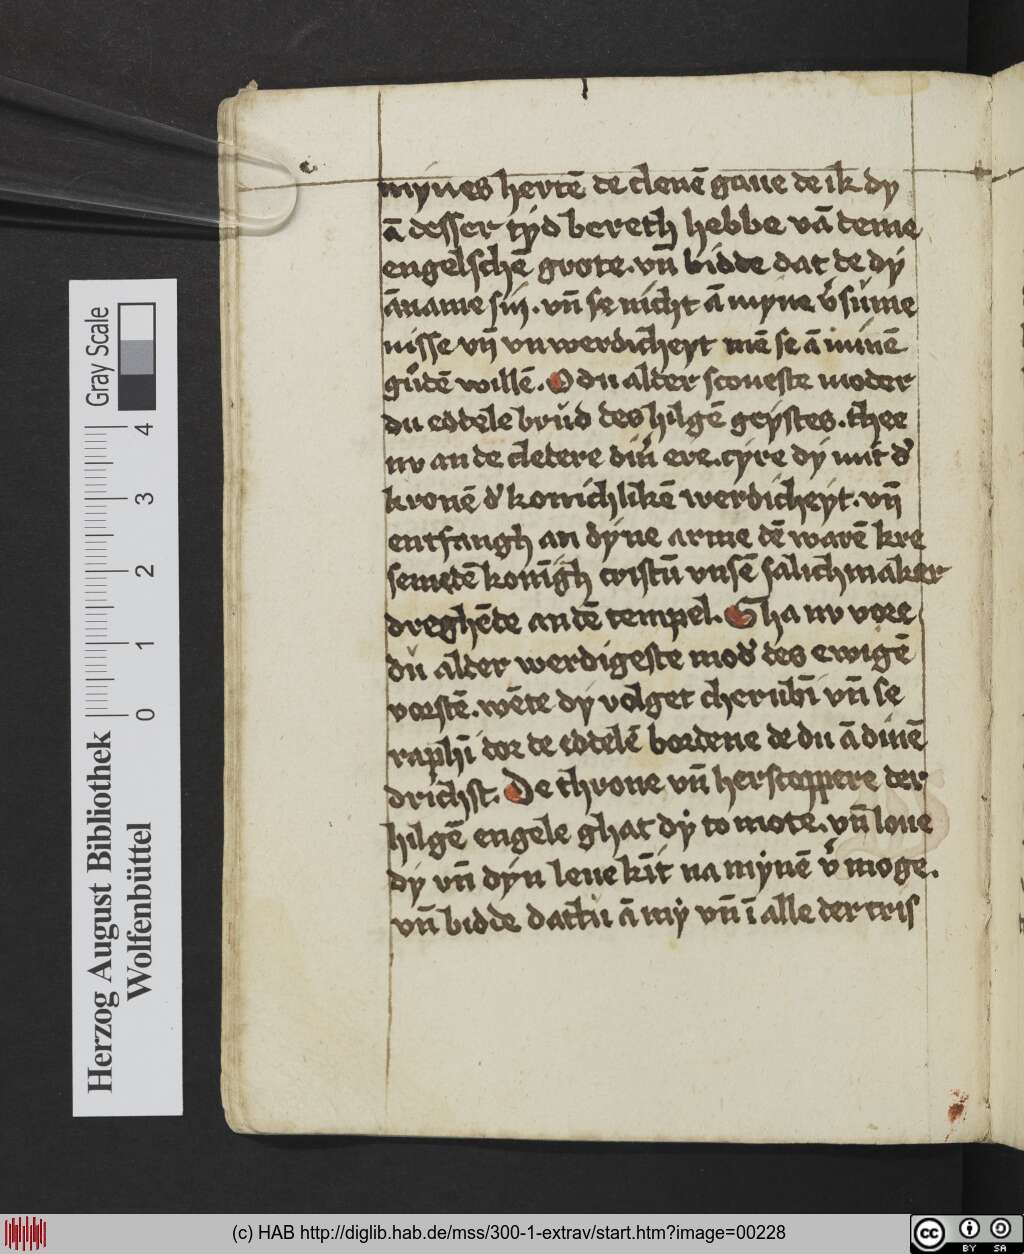 mynes hertē de clenē gaue de ik dy
ā desser tyd bereth hebbe vā deme
engelschē grote. vn̄ bidde dat de dy
āname sin. vn̄ se nicht ā myne v̓sume
nisse vn̄ vnwerdicheyt mē se ā minē
gudē willē. O du alder sconeste moder
du eddele brud des hilgē geystes. thee
nv an de cledere din̓ ere. cyre dy mit d̓
kronē d̓ konichlikē werdicheyt. vn̄
entfangh an dyne arme dē warē kre
semedē konīgh cristū vnsē salichmaker
dreghēde an dē tempel. Gha nv vore
du alder werdigeste mod̓ des ewigē
vorstē. wēte dy volget cherubī vn̄ se
raphī dor de eddelē bordene de du ā dinē
drichst. De throne vn̄ herscoppere der
hilgē engele ghat dy to mote. vn̄ loue
dy vn̄ dyn leue kīt na mynē v̓moge.
vn̄ bidde dattu ā my vn̄ ī alle der cris
Gray Scale
0 1 2 3 4
Herzog August Bibliothek
Wolfenbüttel
(c) HAB http://diglib.hab.de/mss/300-1-extrav/start.htm?image=00228
cc BY SA